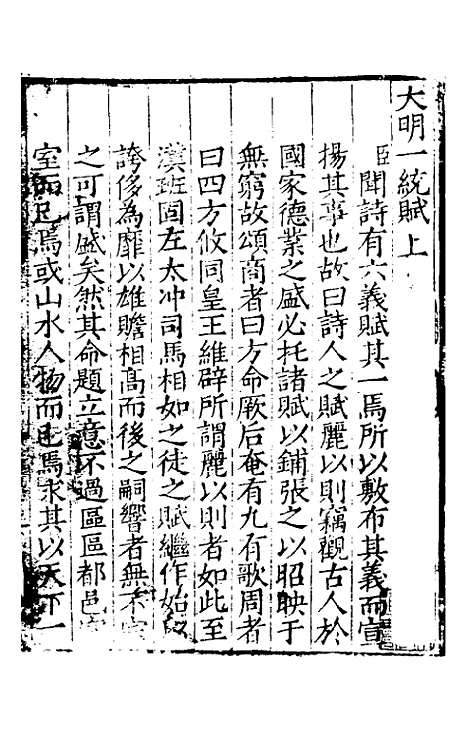 大明一統賦上
臣聞詩有六義賦其一焉所以敷布其義而宣
揚其事也故曰詩人之賦麗以則竊觀古人於
國家德業之盛必托諸賦以鋪張之以昭映于
無窮故頌商者曰方命厥后奄有九有歌周者
曰四方攸同皇王維辟所謂麗以則者如此至
漢班固左太冲司馬相如之徒之賦繼作始
誇侈為靡以雄贍相高而後之嗣響者無不
之可謂盛矣然其命題立意不過區區都邑宮
室而已焉或山水人物而已焉求其以天下一